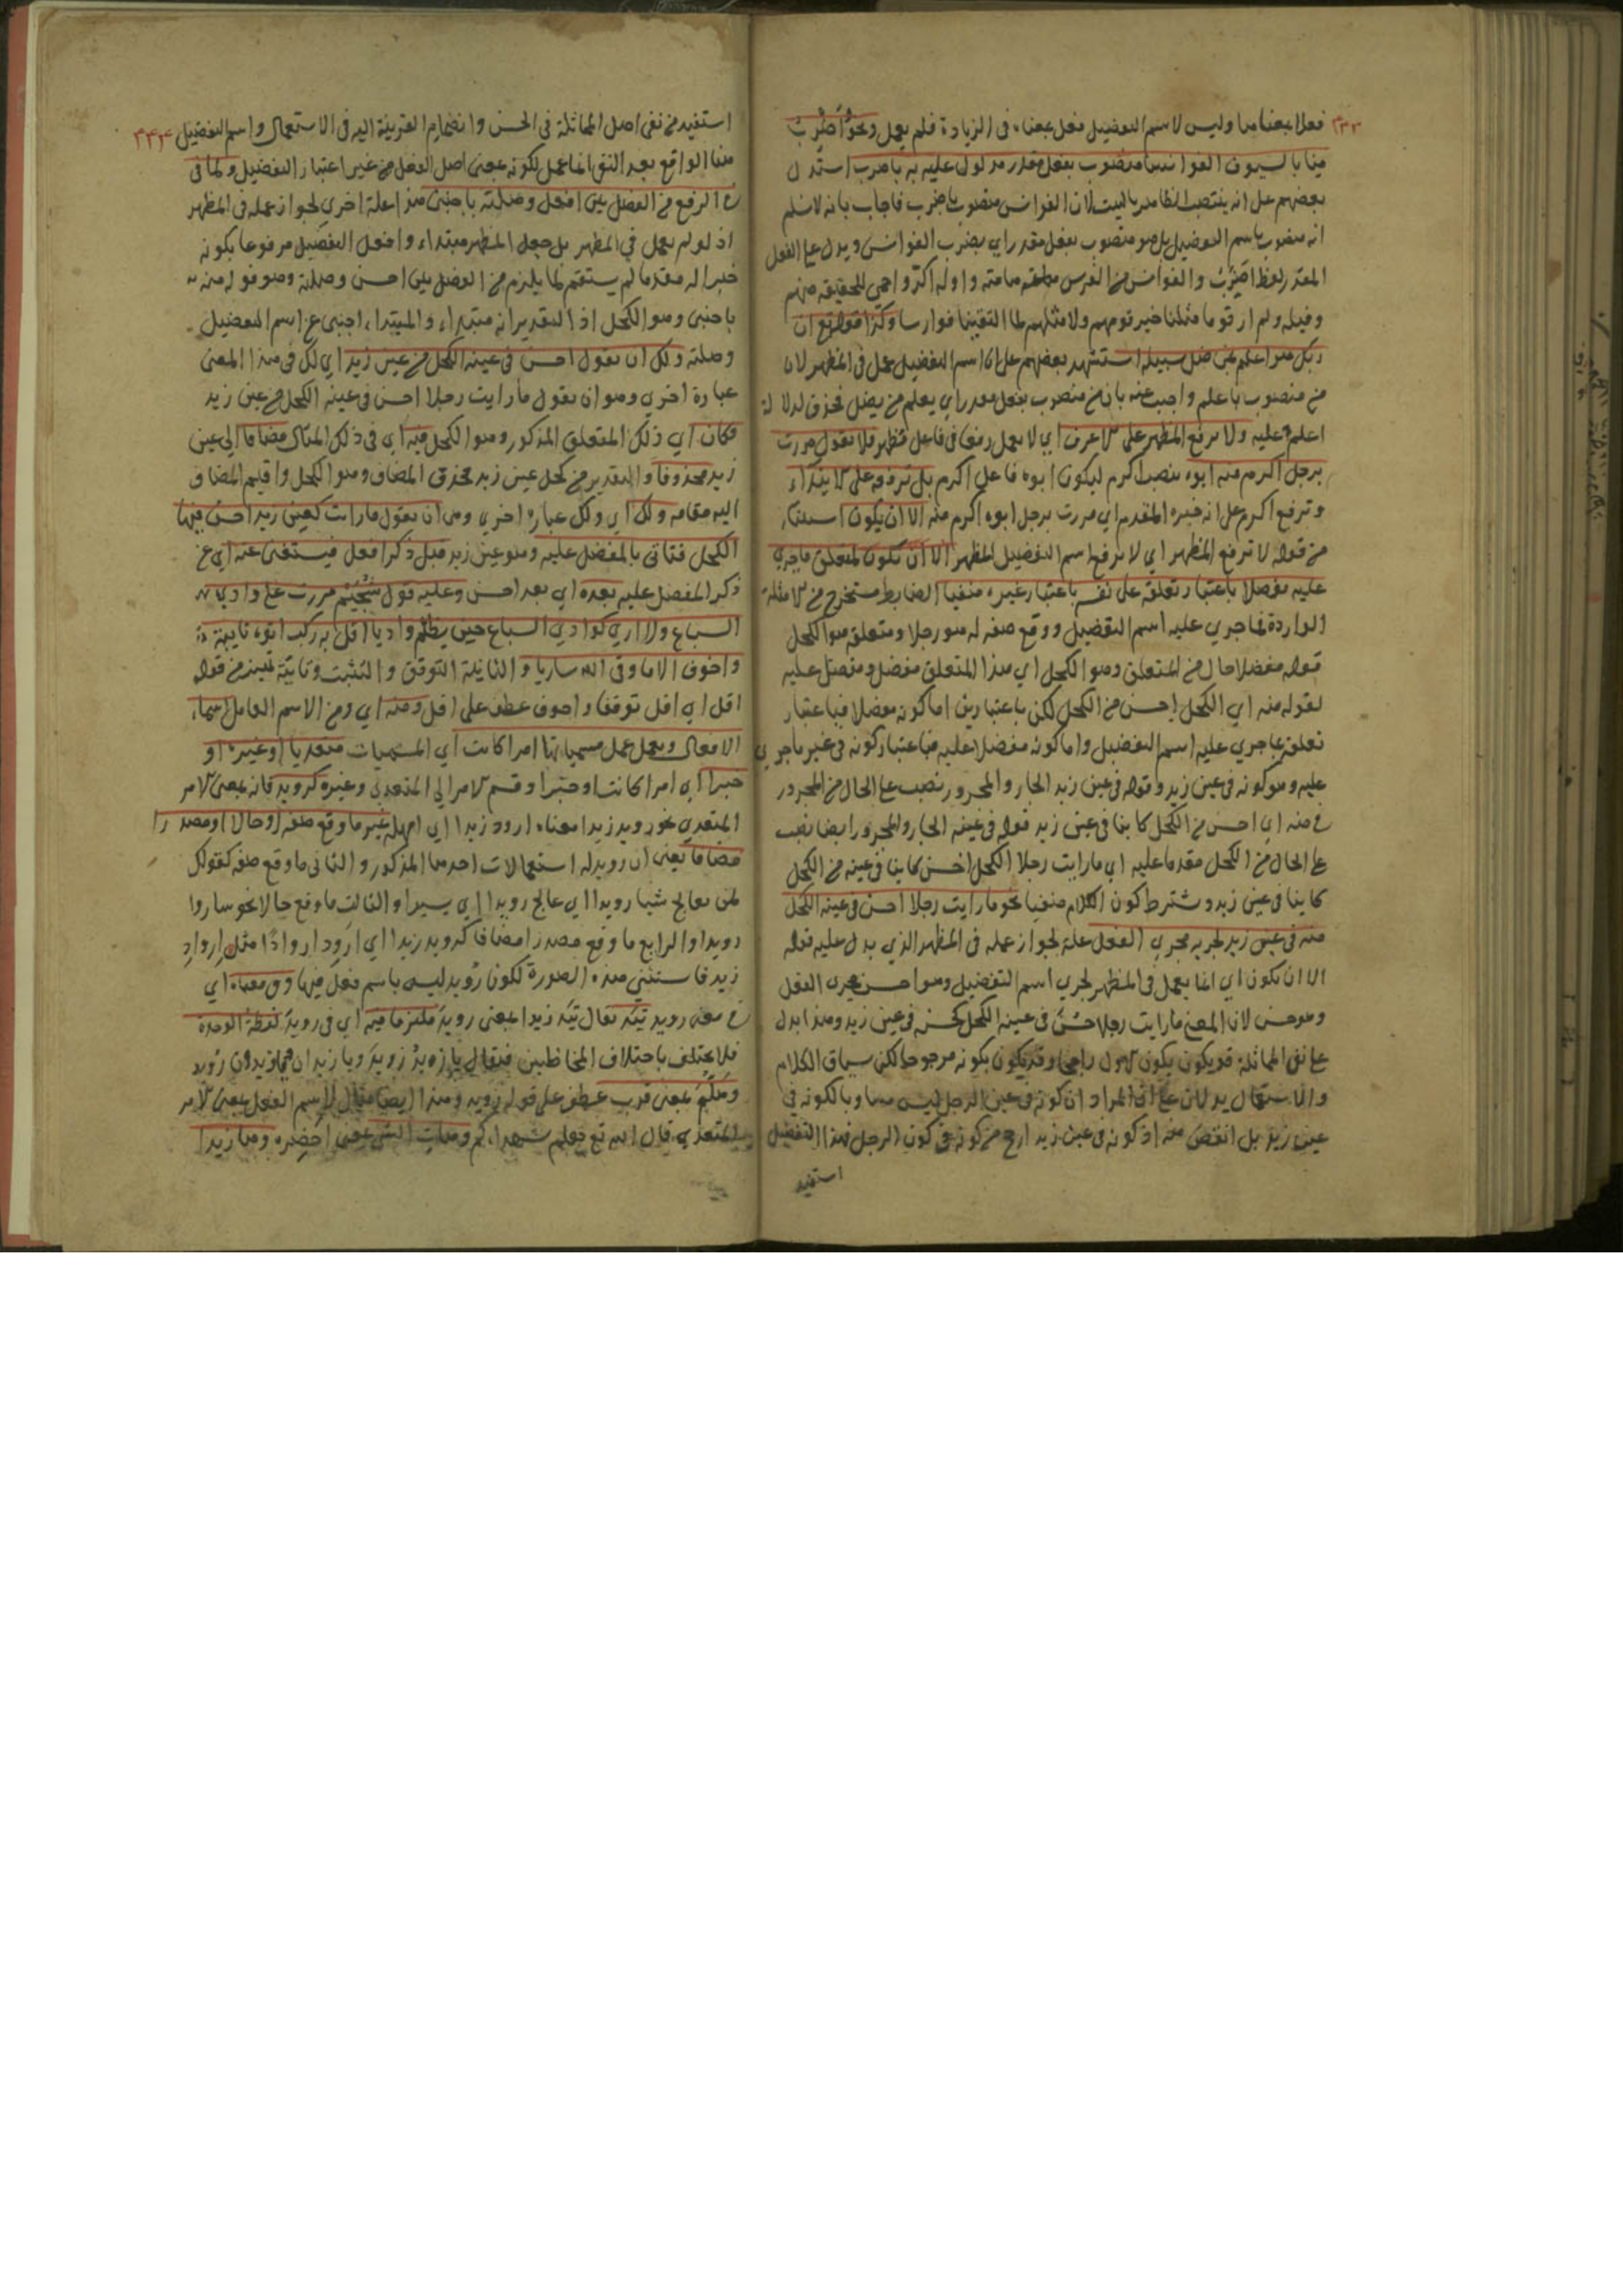 ٢٣٣
فعلا بمعناها وليس لاسم التفضيل فعل بمعناه فى الزيادة فلم يعمل ونحو أضرب
منا بالسيوف القوانسا منصوب بفعل مقدر مدلول عليه به باضرب استدل
بعضهم على انه ينتصب الظاهر بالبيت لان القوانس منصوب باضرب فاجاب بانه لا نسلم
انه منصوب باسم التفضيل بل هو منصوب بفعل مقدر اي يضرب القوانس ويدل على الفعل
المقدر لفظ اضرب والقوانس من الفرس واوله اكر واحمى للحقيقة منهم
وقبله ولم ار قوما مثلنا خير قومهم ولا مثلهم لما التقينا فوارسا وكذا قوله تع ان
ربك هو اعلم من ضل سبيله استشهد بعضهم على ان اسم التفضيل عمل فى المظهر لان
من منصوب باعلم واجيب عنه بان من منصوب بفعل مقدر اي يعلم من يضل فحذف لدلالة
اعلم عليه ولا يرفع المظهر على الاعرف اي لا يعمل رفعا فى فاعل مظهر فلا تقول مررت
برجل اكرم منه ابوه بنصب اكرم ليكون ابوه فاعل اكرم بل ترفعه على الابتداء
وترفع اكرم على انه خبره المقدم اي مررت برجل ابوه اكرم منه الا ان يكون استثناء
من قوله لا ترفع المظهر اي لا يرفع اسم التفضيل المظهر الا ان تكون لمتعلق ما جري
عليه مفضلا باعتبار تعلقه على نفسه باعتبار غيره منفيا الضابط مستخرج من الامثلة
الواردة فما جري عليه اسم التفضيل ووقع صفه له هو رجلا ومتعلقه هو الكحل
قوله مفضلا حال من المتعلق وهو الكحل اي هذا المتعلق مفضل ومفضل عليه
لقوله منه اي الكحل احسن من الكحل لكن باعتبارين اما كونه مفضلا فباعتبار
تعلقه بما جري عليه اسم التفضيل واما كونه مفضلا عليه فباعتبار كونه فى غير ما جري
عليه وهو كونه فى عين زيد وقوله فى عين زيد الجار والمجرور نصب على الحال من المجرور
فى منه اي احسن من الكحل كاينا فى عين زيد قوله فى عينه الجار والمجرور ايضا نصب
على الحال من الكحل مقدما عليه اي ما رايت رجلا الكحل احسن كاينا فى عينه من الكحل
كاينا فى عين زيد وشترط كون الكلام منفيا نحو ما رايت رجلا احسن فى عينه الكحل
منه فى عين زيد لجريه مجري الفعل علة لجواز عمله فى المظهر الذي يدل عليه قوله
الا ان يكون اي انما يعمل فى المظهر لجري اسم التفضيل وهو احسن مجري الفعل
وهو حسن لان المعنى ما رايت رجلا حسن فى عينه الكحل كحسنه فى عين زيد وهذا يدل
على نفى المماثلة قد يكون بكون الاول راجحا وقد يكون بكونه مرجوحا لكن سياق الكلام
والاستعمال يدلان على ان المراد ان كونه فى عين الرجل ليس مساويا لكونه فى
عين زيد بل انقص منه اذ كونه فى عين زيد ارجح من كونه فى كون الرجل فهذا التفضيل
استفيد
٢٣٤
استفيد من نفى اصل المماثلة فى الحسن وانضمام القرينة اليه فى الاستعمال واسم التفضيل
هنا الواقع بعد النفى انما عمل لكونه بمعنى اصل الفعل من غير اعتبار التفضيل ولما فى
الرفع من الفصل بين افعل وصلته باجنبى هذا علة اخري لجواز عمله فى المظهر
اذ لو لم يعمل فى المظهر بل جعل المظهر مبتداء وافعل التفضيل مرفوعا بكونه
خبرا له مقدما لم يستقم لما يلزم من الفصل بين احسن وصلته وهو قوله منه
باجنبى وهو الكحل اذ التقدير انه مبتداء والمبتداء اجنبى عن اسم التفضيل
وصلته ولك ان تقول احسن فى عينه الكحل من عين زيد اي لك فى هذا المعنى
عبارة اخري وهو ان تقول ما رايت رجلا احسن فى عينه الكحل من عين زيد
فكان اي ذلك المتعلق المذكور وهو الكحل فيه اي فى ذلك المثال مضافا الى عين
زيد محذوفا والتقدير من كحل عين زيد فحذف المضاف وهو الكحل واقيم المضاف
اليه مقامه ولك اي ولك عبارة اخري وهى ان تقول ما رايت كعين زيد احسن فيها
الكحل فتاتى بالمفضل عليه وهو عين زيد قبل ذكر افعل فيستغنى عنه اي عن
ذكر المفضل عليه بعده اي بعد احسن وعليه قول سحيم مررت على وادي
السباع ولا اري كوادي السباع حين يظلم واديا اقل به ركب اتوه تايية
واخوف الا ما وقى الله ساريا والتايية التوقف والتثبت وتايية تمييز من قوله
اقل اي اقل توقفا واخوف عطف على اقل ومنه اي ومن الاسم العامل اسماء
الافعال ويعمل عمل مسمياتها امرا كانت اي المسميات متعديا او غيره او
خبرا اي امرا كانت او خبرا وقسم الامر الى المتعدي وغيره كرويد فانه بمعنى الامر
المتعدي نحو رويد زيدا معناه ارود زيدا اي امهله غير ما وقع صفه او حالا او مصدرا
مضافا يعنى ان رويد له استعمالات احدها المذكور والثانى ما وقع صفه كقولك
لمن يعالج شيا رويدا اي عالج رويدا اي يسيرا والثالث ما وقع حالا نحو ساروا
رويدا والرابع ما وقع مصدرا مضافا كرويد زيد اي ارود اروادا مثل ارواد
زيد فاستثنى هذه الصورة لكون رويد ليس باسم فعل فيها وفى معناه اي
فى معنى رويد تيد تقال تيد زيدا بمعنى رويد ملتزما فيه اي فى رويد لفظة الوحدة
فلا يختلف باختلاف المخاطبين فيقال يا زيد رويد ويا زيدان ويا زيدون رويد
وهلم بمعنى قرب عطف على قوله رويد وهذا ايضا مثال لاسم الفعل بمعنى الامر
المتعدي قال الله تع هلم شهداءكم وهات الشى بمعنى احضره وها زيدا